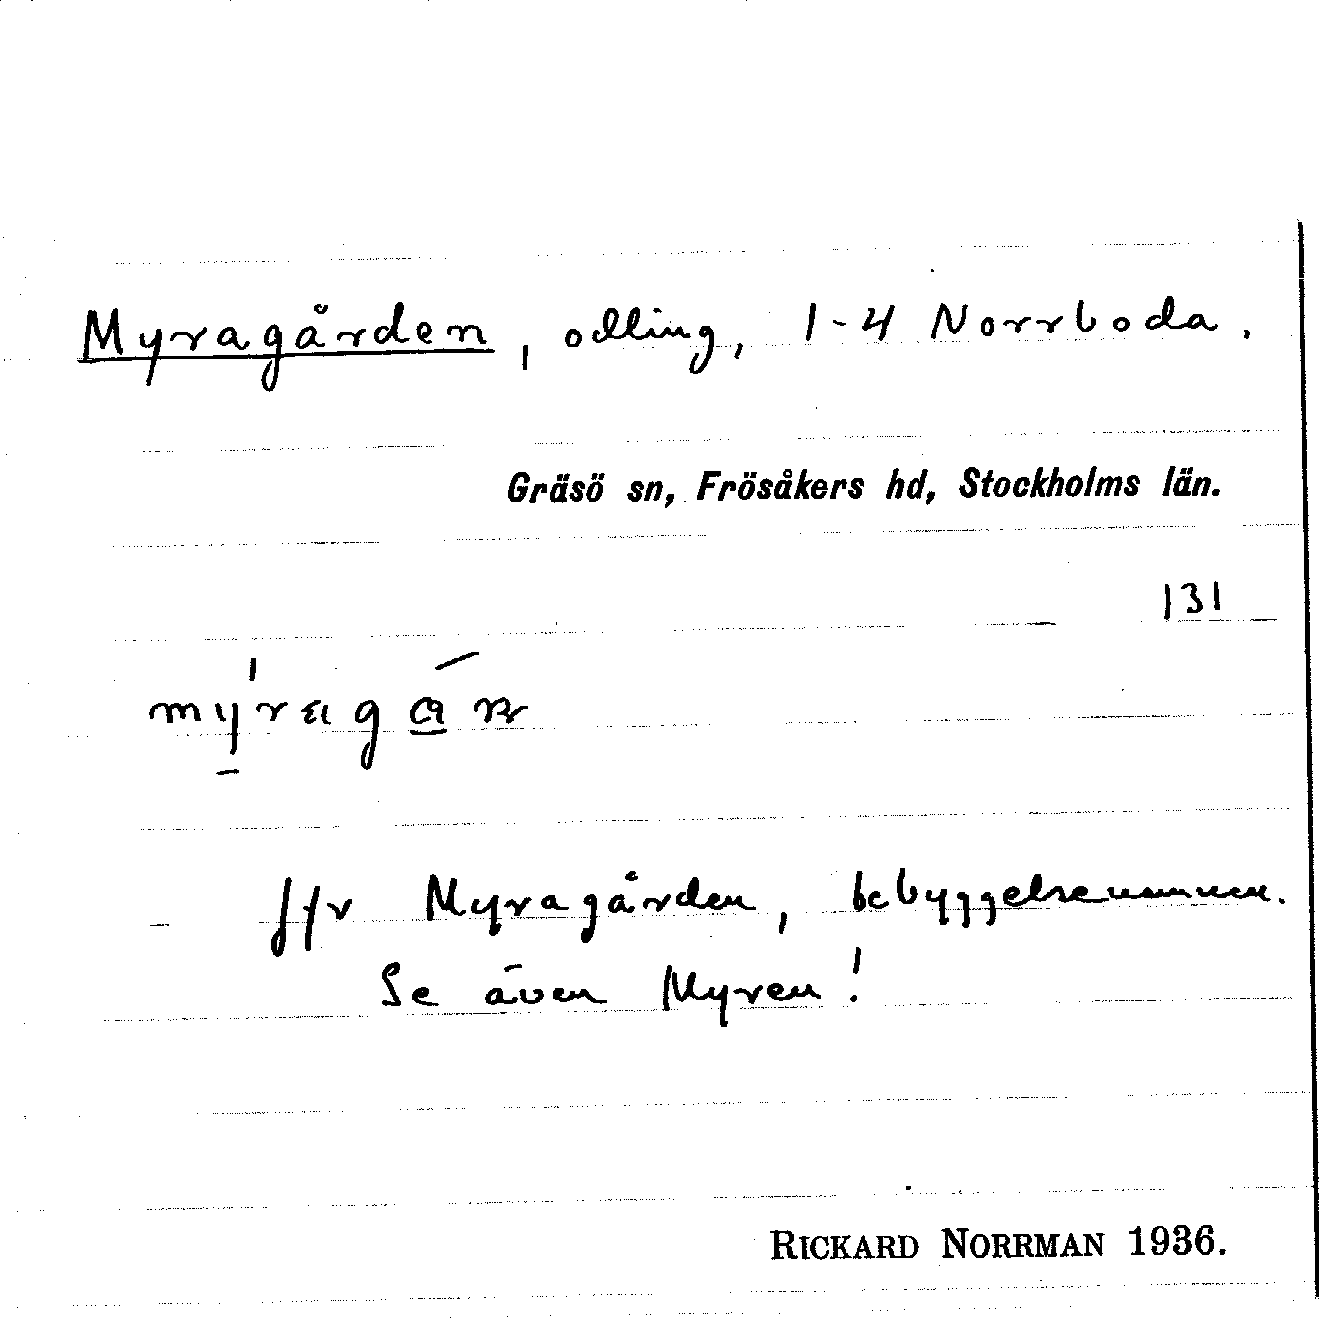 Myragården, odling, 1-4 Norrboda.
Gräsö sn, Frösåkers hd, Stockholms län.
131
Jfr Myragården, bebyggelsenamnen.
Se även Myren!
RICKARD NORRMAN 1936.